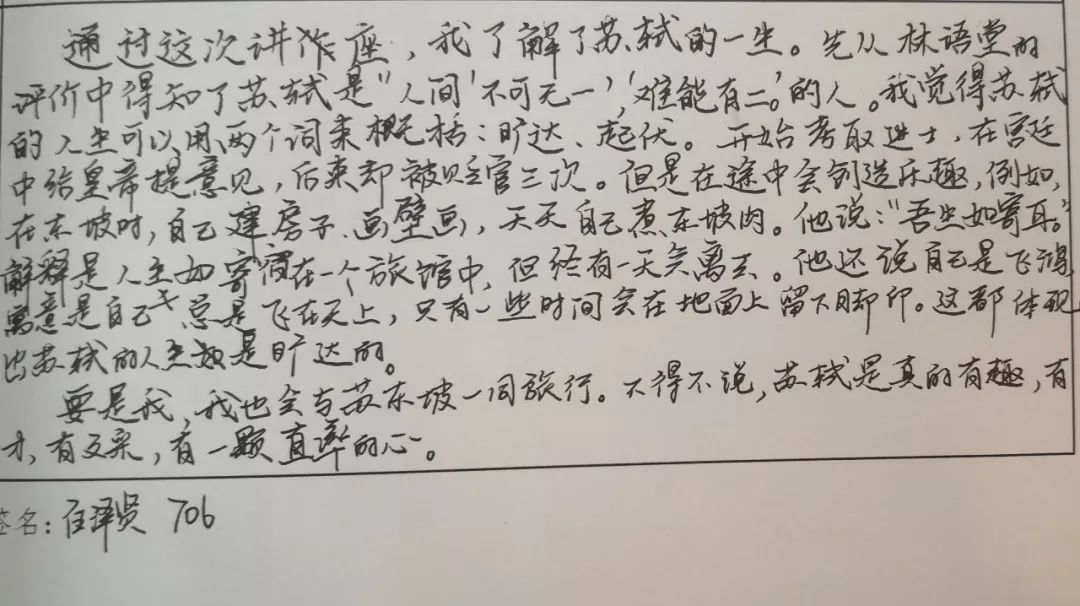 通过这次讲作座，我了解了苏轼的一生。先从林语堂的
评价中得知了苏轼是"人间'不可无一'，'难能有二'。的人。我觉得苏轼
的人生可以用两个词来概括：旷达、起伏。开始考取进士，在宫廷
中给皇帝提意见，后来却被贬官三次。但是在途中会创造乐趣，例如，
在东坡时，自己建房子、画壁画，天天自己煮东坡肉。他说："吾生如寄耳。"
解释是人生如寄宿在一个旅馆中，但终有一天会离去。他还说自己是飞鸿
寓意是自己总是飞在天上，只有一些时间会在地面上留下脚印。这都体现
出苏轼的人生观是旷达的。
要是我，我也会与苏东坡一同旅行。不得不说，苏轼是真的有趣，有
才，有文采，有一颗直率的心。
签名：任译贤 706